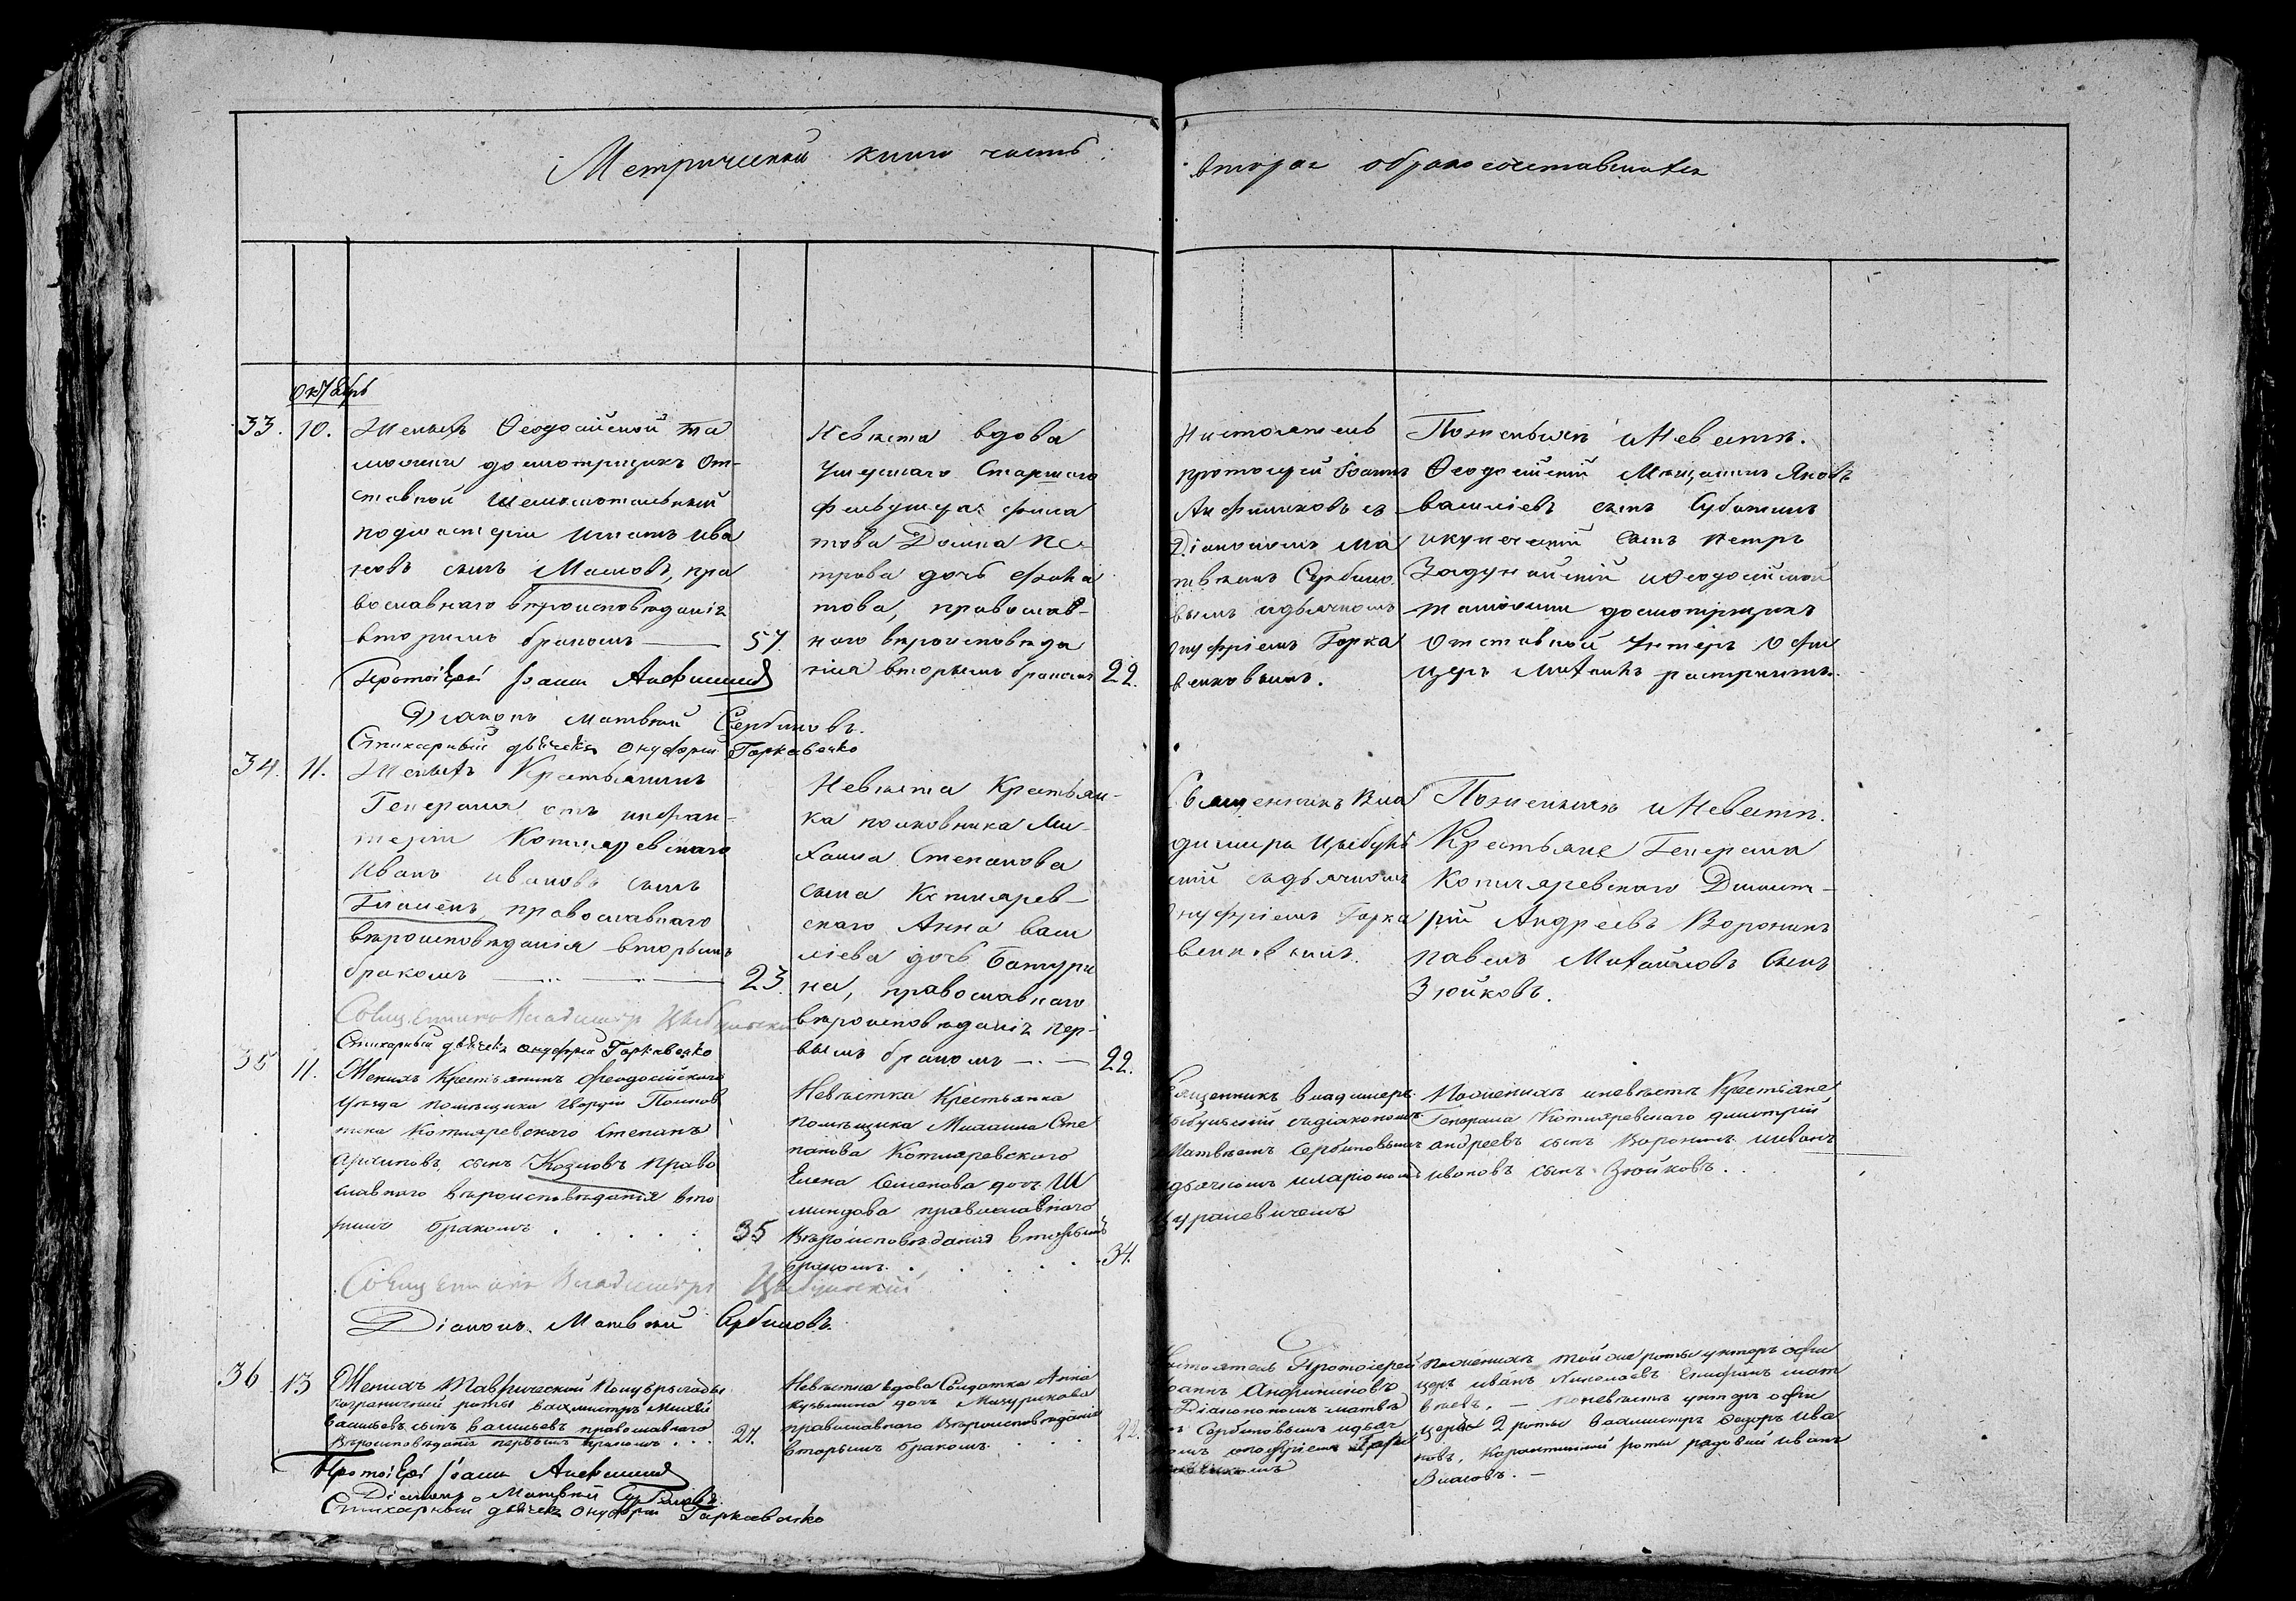 Метрической книги часть
вторая о бракосочетавшихся
Октябрь
33. 10. Женихъ Ѳеодосійской та
можни досмотрщикъ От-
ставной
Ива
новъ сынъ Масловъ, пра
вославнаго вѣроисповѣданія
вторымъ бракомъ — 57.
Невѣста вдова
Умершаго Старшаго
Фельдшера Фила
това Домна Пе-
трова дочь Фила
това, православ-
наго вѣроисповѣда
нія вторымъ бракомъ 22.
Настоятель
протоіерей Іоаннъ
Анфимиковъ съ
Діакономъ Ма
твѣемъ Сербино
вымъ и дьячкомъ
Онуфріемъ Горка
венковымъ.
По женихѣ и Невестѣ.
Ѳеодосійскій Мещанинъ Яковъ
Василіевъ сынъ Субатинъ
и купеческій Сынъ Петръ
Задунайскій и Ѳеодосійской
таможни досмотрщикъ
Отставной Унтеръ Офи
церъ
Протоіерей Іоаннъ
Діаконъ Матвѣй Сербиновъ.
Стихарный дьячекъ Онуфрій Горкавенко
34. 11. Женихъ Крестьянинъ
Генерала отъ инфан-
теріи Котляревскаго
Иванъ Ивановъ сынъ
православнаго
вѣроисповѣданія вторымъ
бракомъ — 23.
Невѣста Крестьян-
ка полковника Ми-
хаила Степанова
сына Котлярев-
скаго Анна Васи
ліева дочь Батури
на, православнаго
вѣроисповѣданія пер-
вымъ бракомъ — 22.
Священникъ Вла
димиръ Цыбуль
скій съ дьячкомъ
Онуфріемъ Горка
венковымъ.
По женихѣ и Невестѣ.
Крестьяне Генерала
Котляревскаго Димит-
рій Андреевъ Воронинъ
Павелъ Михайловъ Сынъ
Зюйковъ.
Священникъ Владимиръ Цыбульскій
Стихарный дьячекъ Онуфрій Горкавенко
35 11. Женихъ Крестьянинъ Феодосійскаго
уѣзда помѣщика Гвардіи Полков
ника Котляревскаго Степанъ
Архиповъ сынъ Козловъ право
славнаго вѣроисповѣданія вто
рымъ бракомъ 35
Невѣстка Крестьянка
помѣщика Михаила Сте
панова Котляревскаго
Елена Семенова дочь
православнаго
вѣроисповѣданія вторымъ
бракомъ 34.
Священникъ Владимеръ
Цыбульскій съ діакономъ
Матвѣемъ Сербиновымъ
дьячкомъ Иларіономъ
По женихѣ и невѣстѣ Крестьяне
Генерала Котляревскаго Димитрій
Андреевъ сынъ Воронинъ и Иванъ
Ивановъ сынъ Зюйковъ.
Священникъ Владимиръ Цыбульскій
Діаконъ Матвѣй Сербиновъ.
36 13 Женихъ Таврической
пограничной роты вахмистръ
Васильевъ сынъ Васильевъ православнаго
вѣроисповѣданія первымъ бракомъ 27.
Невѣста вдова Солдатка Анна
Кузьмина дочь Мазурикова
православнаго вѣроисповѣданія
вторымъ бракомъ 22.
Настоятель Протоіерей
Іоаннъ Анфимиковъ
съ Діакономъ Матвѣе
мъ Сербиновымъ и дьяч
комъ Онуфріемъ
По женихѣ той же роты унтеръ офи
церъ Иванъ Николаевъ
— По невѣстѣ унтеръ офи
церъ 2 роты вахмистръ Федоръ Ива
новъ, Карантинной роты рядовой Иванъ
Власовъ. —
Протоіерей Іоаннъ
Діаконъ Матвѣй Сербиновъ.
Стихарный дьячекъ Онуфрій Горкавенко